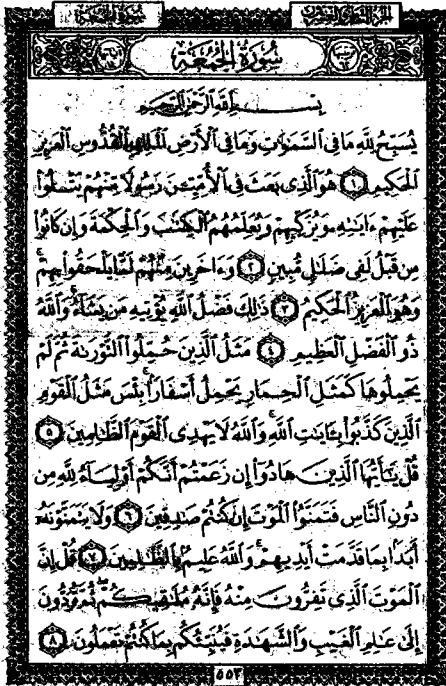 سورة الجمعة
الجزء الثامن والعشرون
سورة الجمعة
بسم الله الرحمن الرحيم
يُسَبِّحُ لِلَّهِ مَا فِي السَّمَٰوَٰتِ وَمَا فِي الْأَرْضِ الْمَلِكِ الْقُدُّوسِ الْعَزِيزِ
الْحَكِيمِ ١ هُوَ الَّذِي بَعَثَ فِي الْأُمِّيِّـۧنَ رَسُولًا مِّنْهُمْ يَتْلُوا۟
عَلَيْهِمْ ءَايَٰتِهِ وَيُزَكِّيهِمْ وَيُعَلِّمُهُمُ الْكِتَٰبَ وَالْحِكْمَةَ وَإِن كَانُوا۟
مِن قَبْلُ لَفِي ضَلَٰلٍ مُّبِينٍ ٢ وَءَاخَرِينَ مِنْهُمْ لَمَّا يَلْحَقُوا۟ بِهِمْ
وَهُوَ الْعَزِيزُ الْحَكِيمُ ٣ ذَٰلِكَ فَضْلُ اللَّهِ يُؤْتِيهِ مَن يَشَآءُ وَاللَّهُ
ذُو الْفَضْلِ الْعَظِيمِ ٤ مَثَلُ الَّذِينَ حُمِّلُوا۟ التَّوْرَىٰةَ ثُمَّ لَمْ
يَحْمِلُوهَا كَمَثَلِ الْحِمَارِ يَحْمِلُ أَسْفَارًا بِئْسَ مَثَلُ الْقَوْمِ
الَّذِينَ كَذَّبُوا۟ بِـَٔايَٰتِ اللَّهِ وَاللَّهُ لَا يَهْدِي الْقَوْمَ الظَّٰلِمِينَ ٥
قُلْ يَٰٓأَيُّهَا الَّذِينَ هَادُوٓا۟ إِن زَعَمْتُمْ أَنَّكُمْ أَوْلِيَآءُ لِلَّهِ مِن
دُونِ النَّاسِ فَتَمَنَّوُا۟ الْمَوْتَ إِن كُنتُمْ صَٰدِقِينَ ٦ وَلَا يَتَمَنَّوْنَهُ
أَبَدًا بِمَا قَدَّمَتْ أَيْدِيهِمْ وَاللَّهُ عَلِيمٌ بِالظَّٰلِمِينَ ٧ قُلْ إِنَّ
الْمَوْتَ الَّذِي تَفِرُّونَ مِنْهُ فَإِنَّهُ مُلَٰقِيكُمْ ثُمَّ تُرَدُّونَ
إِلَىٰ عَٰلِمِ الْغَيْبِ وَالشَّهَٰدَةِ فَيُنَبِّئُكُم بِمَا كُنتُمْ تَعْمَلُونَ ٨
٥٥٣